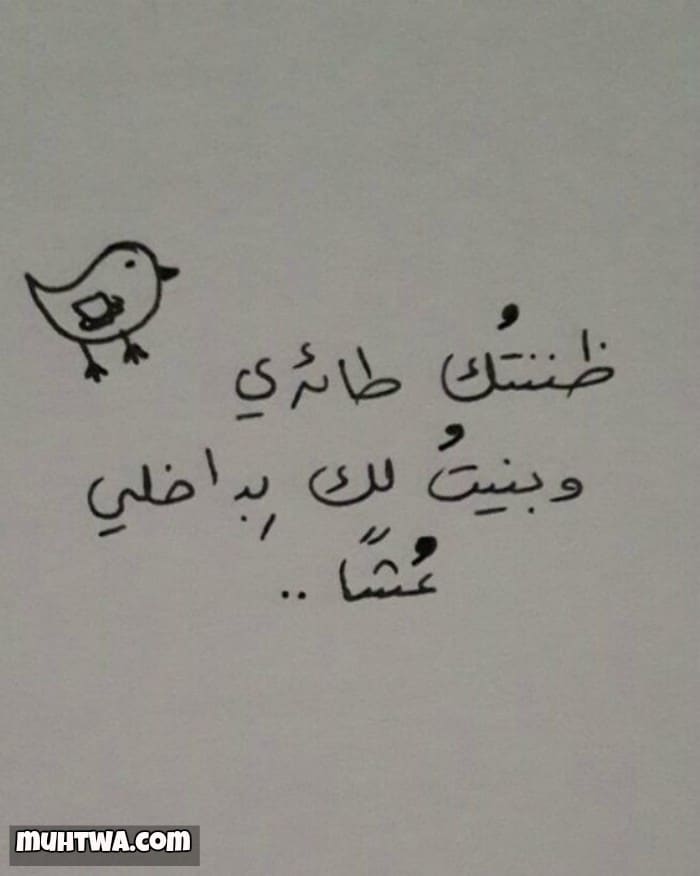 ظننتُك طائري
وبنيتُ لك بِداخلي
عُشًا ..
MUHTWA.COM